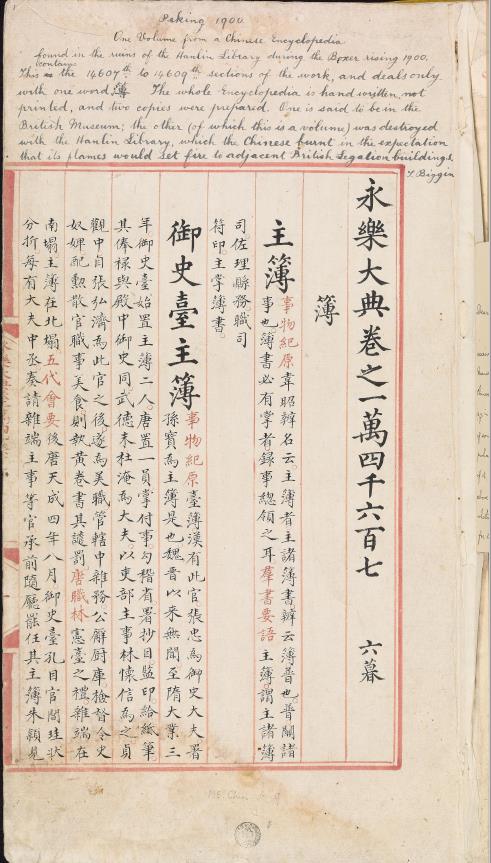 Peking 1900.
One Volume from a Chinese Encyclopedia
found in the ruins of the Hanlin Library during the Boxer rising 1900.
(contains
This is the 14607th to 14609th sections of the work, and deals only
with one word 簿. The whole Encyclopedia is hand written, not
printed, and two copies were prepared. One is said to be in the
British Museum; the other (of which this is a volume) was destroyed
with the Hanlin Library, which the Chinese burnt in the expectation
that its flames would set fire to adjacent British Legation buildings.
T. Biggin
永樂大典卷之一萬四千六百七 六暮
簿
主簿 事物紀原韋昭辯名云主簿者主諸簿書辦云簿普也普關諸
事也簿書必有掌者錄事總領之耳羣書要語主簿謂主諸簿
司佐理縣務職司
符印主掌簿書
御史臺主簿 事物紀原臺簿漢有此官張忠為御史大夫署
孫寶為主簿是也魏晉以來無聞至隋大業三
年御史臺始置主簿二人唐置一員掌付事勾稽省署抄目監印給紙筆
其俸祿與殿中御史同武德末杜淹為大夫以吏部主事林懷信為之貞
觀中自張弘濟為此官之後遂為美職管轄中雜務公廨厨庫檢督令史
奴婢配勳散官職事美食則執黃卷書其譴罰唐職林憲臺之禮雜端在
南塌主簿在北塌五代會要後唐天成四年八月御史臺孔目官閻珪狀
分折每有大夫中丞奏請雜端主事等官承前隨廳罷任其主簿朱穎見